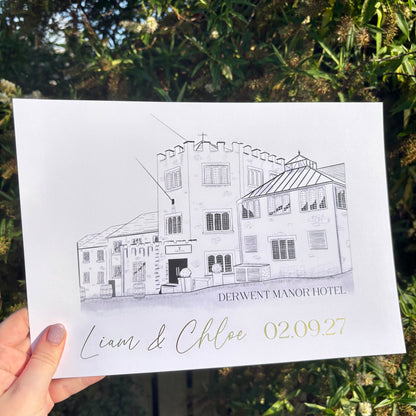 DERWENT MANOR HOTEL
Liam & Chloe 02.09.27